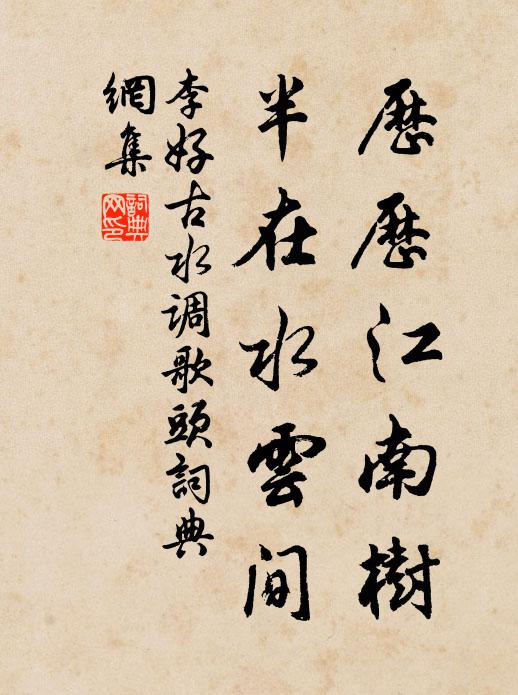 歷歷江南樹
半在水雲間
李好古水调歌頭詞典
網集
詞典網印